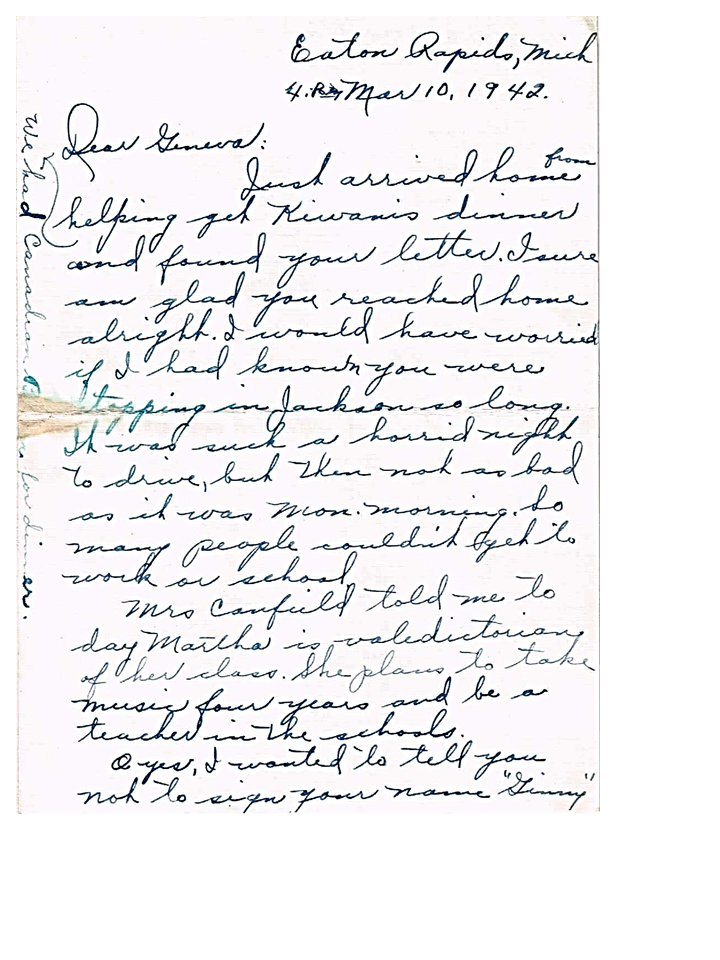 Eaton Rapids, Mich
Mar 10, 1942.
Dear Geneva:
Just arrived home from
helping get Kiwanis dinner
and found your letter. I sure
am glad you reached home
alright. I would have worried
if I had known you were
stopping in Jackson so long.
It was such a horrid night
to drive, but then not as bad
as it was Mon. morning. So
many people couldn't get to
work or school.
Mrs Canfield told me to
day Martha is valedictorian
of her class. She plans to take
music four years and be a
teacher in the schools.
O yes, I wanted to tell you
not to sign your name "Ginny"
We had Canadian for dinner.